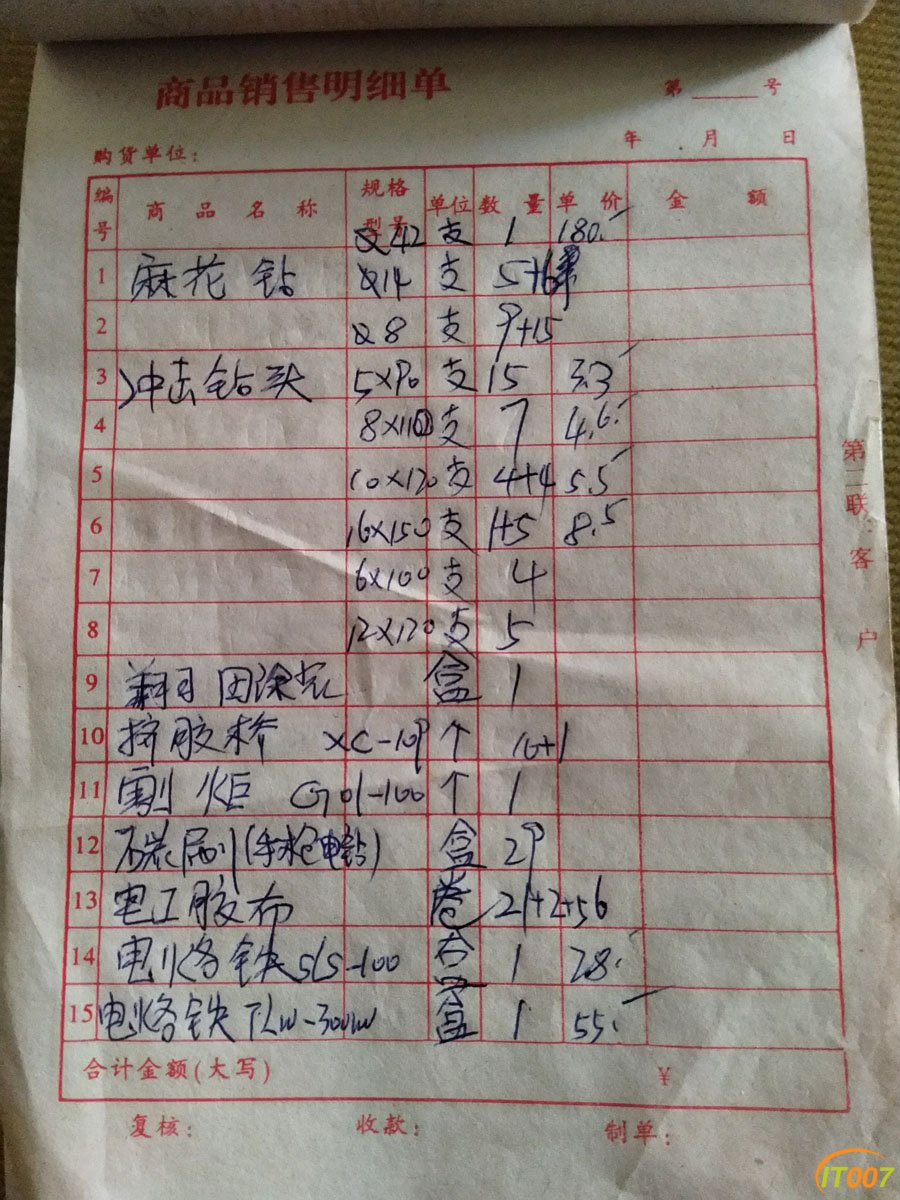 商品销售明细单
第 号
购货单位: 年 月 日
编号 商品名称 规格型号 单位 数量 单价 金额
Φ42 支 1 180.
1 麻花钻 Φ14 支 5+6
2 Φ8 支 9+15
3 冲击钻头 5×90 支 15 3.3
4 8×110 支 7 4.6.
5 10×120 支 4+4 5.5
6 16×150 支 1+5 8.5
7 6×100 支 4
8 12×120 支 5
9 盒 1
10 挤胶 XC-109 个 10+1
11 割炬 G01-100 个 1
12 石炭刷(手枪电钻) 盒 29
13 电工胶布 卷 21+2+56
14 电烙铁 SLS-100 盒 1 28.
15 电烙铁 TLW-300W 盒 1 55.
合计金额(大写) ¥
复核: 收款: 制单:
第二联:客户
IT007